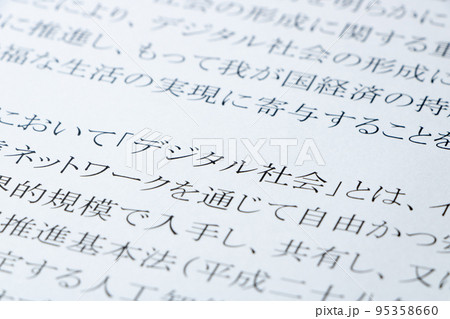 会の形成に関する
とにより、デジタル社会の形成に
に推進し、もって我が国経済の持
福な生活の実現に寄与することを
において「デジタル社会」とは、イ
ネットワークを通じて自由かつ
的規模で入手し、共有し、又は
推進基本法（平成二十八
定する人工知
PIXTA
pixta.jp - 95358660